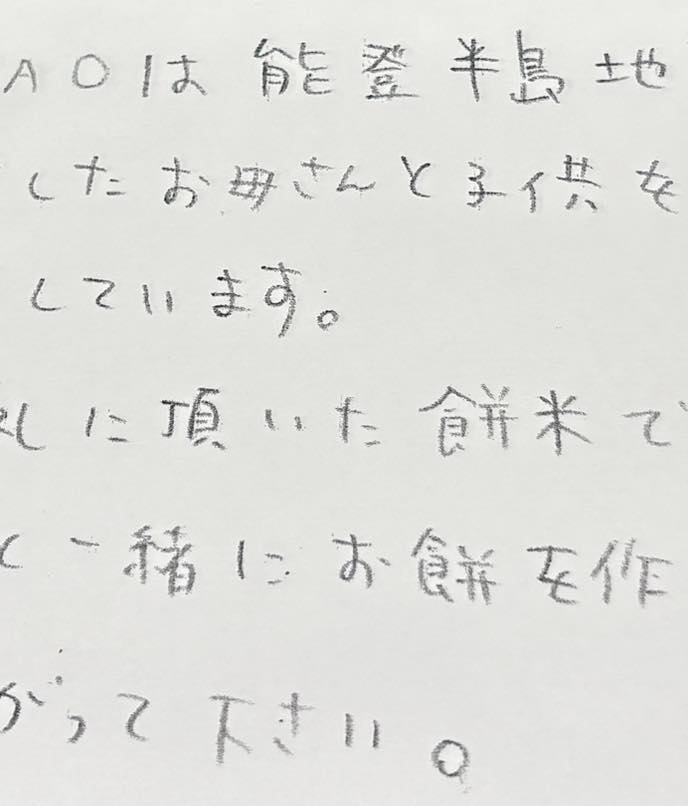 AOは能登半島地
したお母さんと子供を
しています。
礼に頂いた餅米で
く一緒にお餅を作
がって下さい。